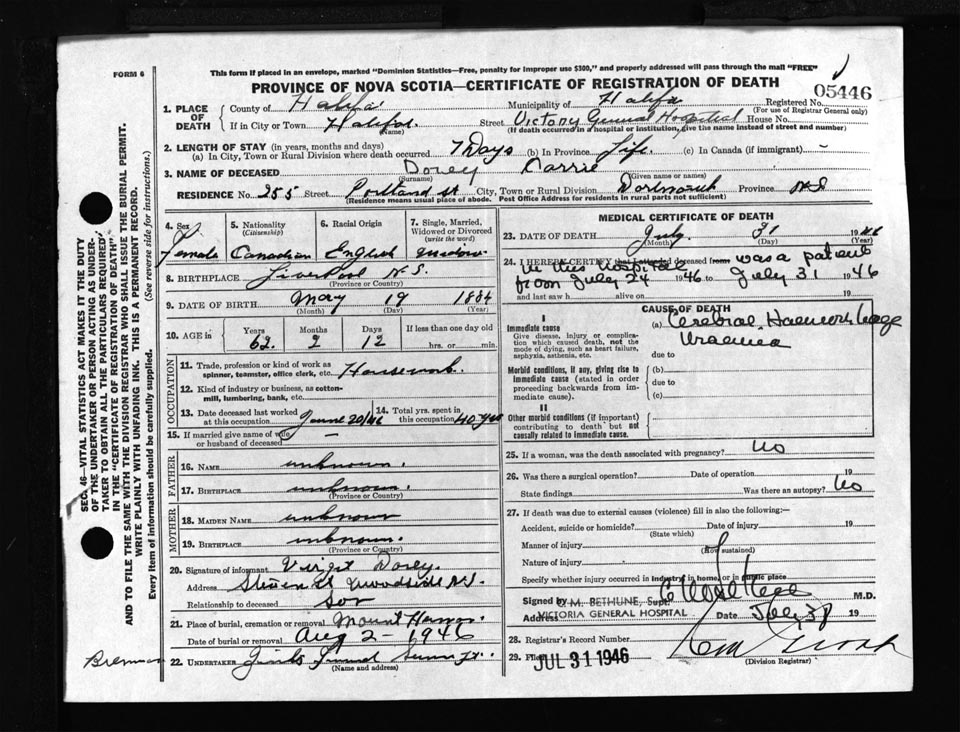 FORM 6
This form if placed in an envelope, marked "Dominion Statistics—Free, penalty for improper use $300," and properly addressed will pass through the mail "FREE"
PROVINCE OF NOVA SCOTIA—CERTIFICATE OF REGISTRATION OF DEATH
05446
1. PLACE OF DEATH
County of Halifax Municipality of Halifax Registered No.
(For use of Registrar General only)
If in City or Town Halifax Street Victory General Hospital House No.
(Name) (If death occurred in a hospital or institution, give the name instead of street and number)
2. LENGTH OF STAY (in years, months and days)
(a) In City, Town or Rural Division where death occurred 7 Days (b) In Province Life. (c) In Canada (if immigrant) -
3. NAME OF DECEASED Dorey Carrie
(Surname) (Given name or names)
RESIDENCE No. 255 Street Portland St City, Town or Rural Division Dartmouth Province N.S
(Residence means usual place of abode. Post Office Address for residents in rural parts not sufficient)
4. Sex Female
5. Nationality (Citizenship) Canadian
6. Racial Origin English
7. Single, Married, Widowed or Divorced (write the word) Widow
8. BIRTHPLACE Liverpool N.S.
(Province or Country)
9. DATE OF BIRTH May 19 1884
(Month) (Day) (Year)
10. AGE in Years Months Days If less than one day old
62. 2 12 hrs. or min.
OCCUPATION
11. Trade, profession or kind of work as spinner, teamster, office clerk, etc. Housework.
12. Kind of industry or business, as cotton-mill, lumbering, bank, etc.
13. Date deceased last worked at this occupation June 20/46
14. Total yrs. spent in this occupation 40 yrs
15. If married give name of wife or husband of deceased —
FATHER
16. NAME unknown.
17. BIRTHPLACE unknown.
(Province or Country)
MOTHER
18. MAIDEN NAME unknown
19. BIRTHPLACE unknown.
(Province or Country)
20. Signature of informant Virgil Dorey
Address Woodside N.S.
Relationship to deceased Son
21. Place of burial, cremation or removal Mount Hermon.
Date of burial or removal Aug 2 - 1946
Brennan
22. UNDERTAKER Funeral
(Name and address)
MEDICAL CERTIFICATE OF DEATH
23. DATE OF DEATH July 31 1946
(Month) (Day) (Year)
24. I HEREBY CERTIFY that I attended deceased from was a patient
in this hospital
from July 24 1946 to July 31 1946
and last saw h alive on 19
CAUSE OF DEATH
I
Immediate cause
Give disease, injury or complication which caused death, not the mode of dying, such as heart failure, asphyxia, asthenia, etc.
(a) Cerebral Haemorrhage
Uraemia
due to
Morbid conditions, if any, giving rise to immediate cause (stated in order proceeding backwards from immediate cause).
(b)
due to
(c)
II
Other morbid conditions (if important) contributing to death but not causally related to immediate cause.
25. If a woman, was the death associated with pregnancy? No
26. Was there a surgical operation? Date of operation 19
State findings Was there an autopsy? No
27. If death was due to external causes (violence) fill in also the following:—
Accident, suicide or homicide? Date of injury 19
(State which)
Manner of injury
(How sustained)
Nature of injury
Specify whether injury occurred in industry, in home, or in public place
Signed by M.D.
C. M. BETHUNE, Supt.
Address VICTORIA GENERAL HOSPITAL Date July 31 19
28. Registrar's Record Number
29. Filed JUL 31 1946
(Division Registrar)
SEC. 46—VITAL STATISTICS ACT MAKES IT THE DUTY
OF THE UNDERTAKER OR PERSON ACTING AS UNDER-
TAKER TO OBTAIN ALL THE PARTICULARS REQUIRED
IN THE "CERTIFICATE OF REGISTRATION OF DEATH"
AND TO FILE THE SAME WITH THE DIVISION REGISTRAR WHO SHALL ISSUE THE BURIAL PERMIT.
WRITE PLAINLY WITH UNFADING INK. THIS IS A PERMANENT RECORD.
Every item of information should be carefully supplied. (See reverse side for instructions.)